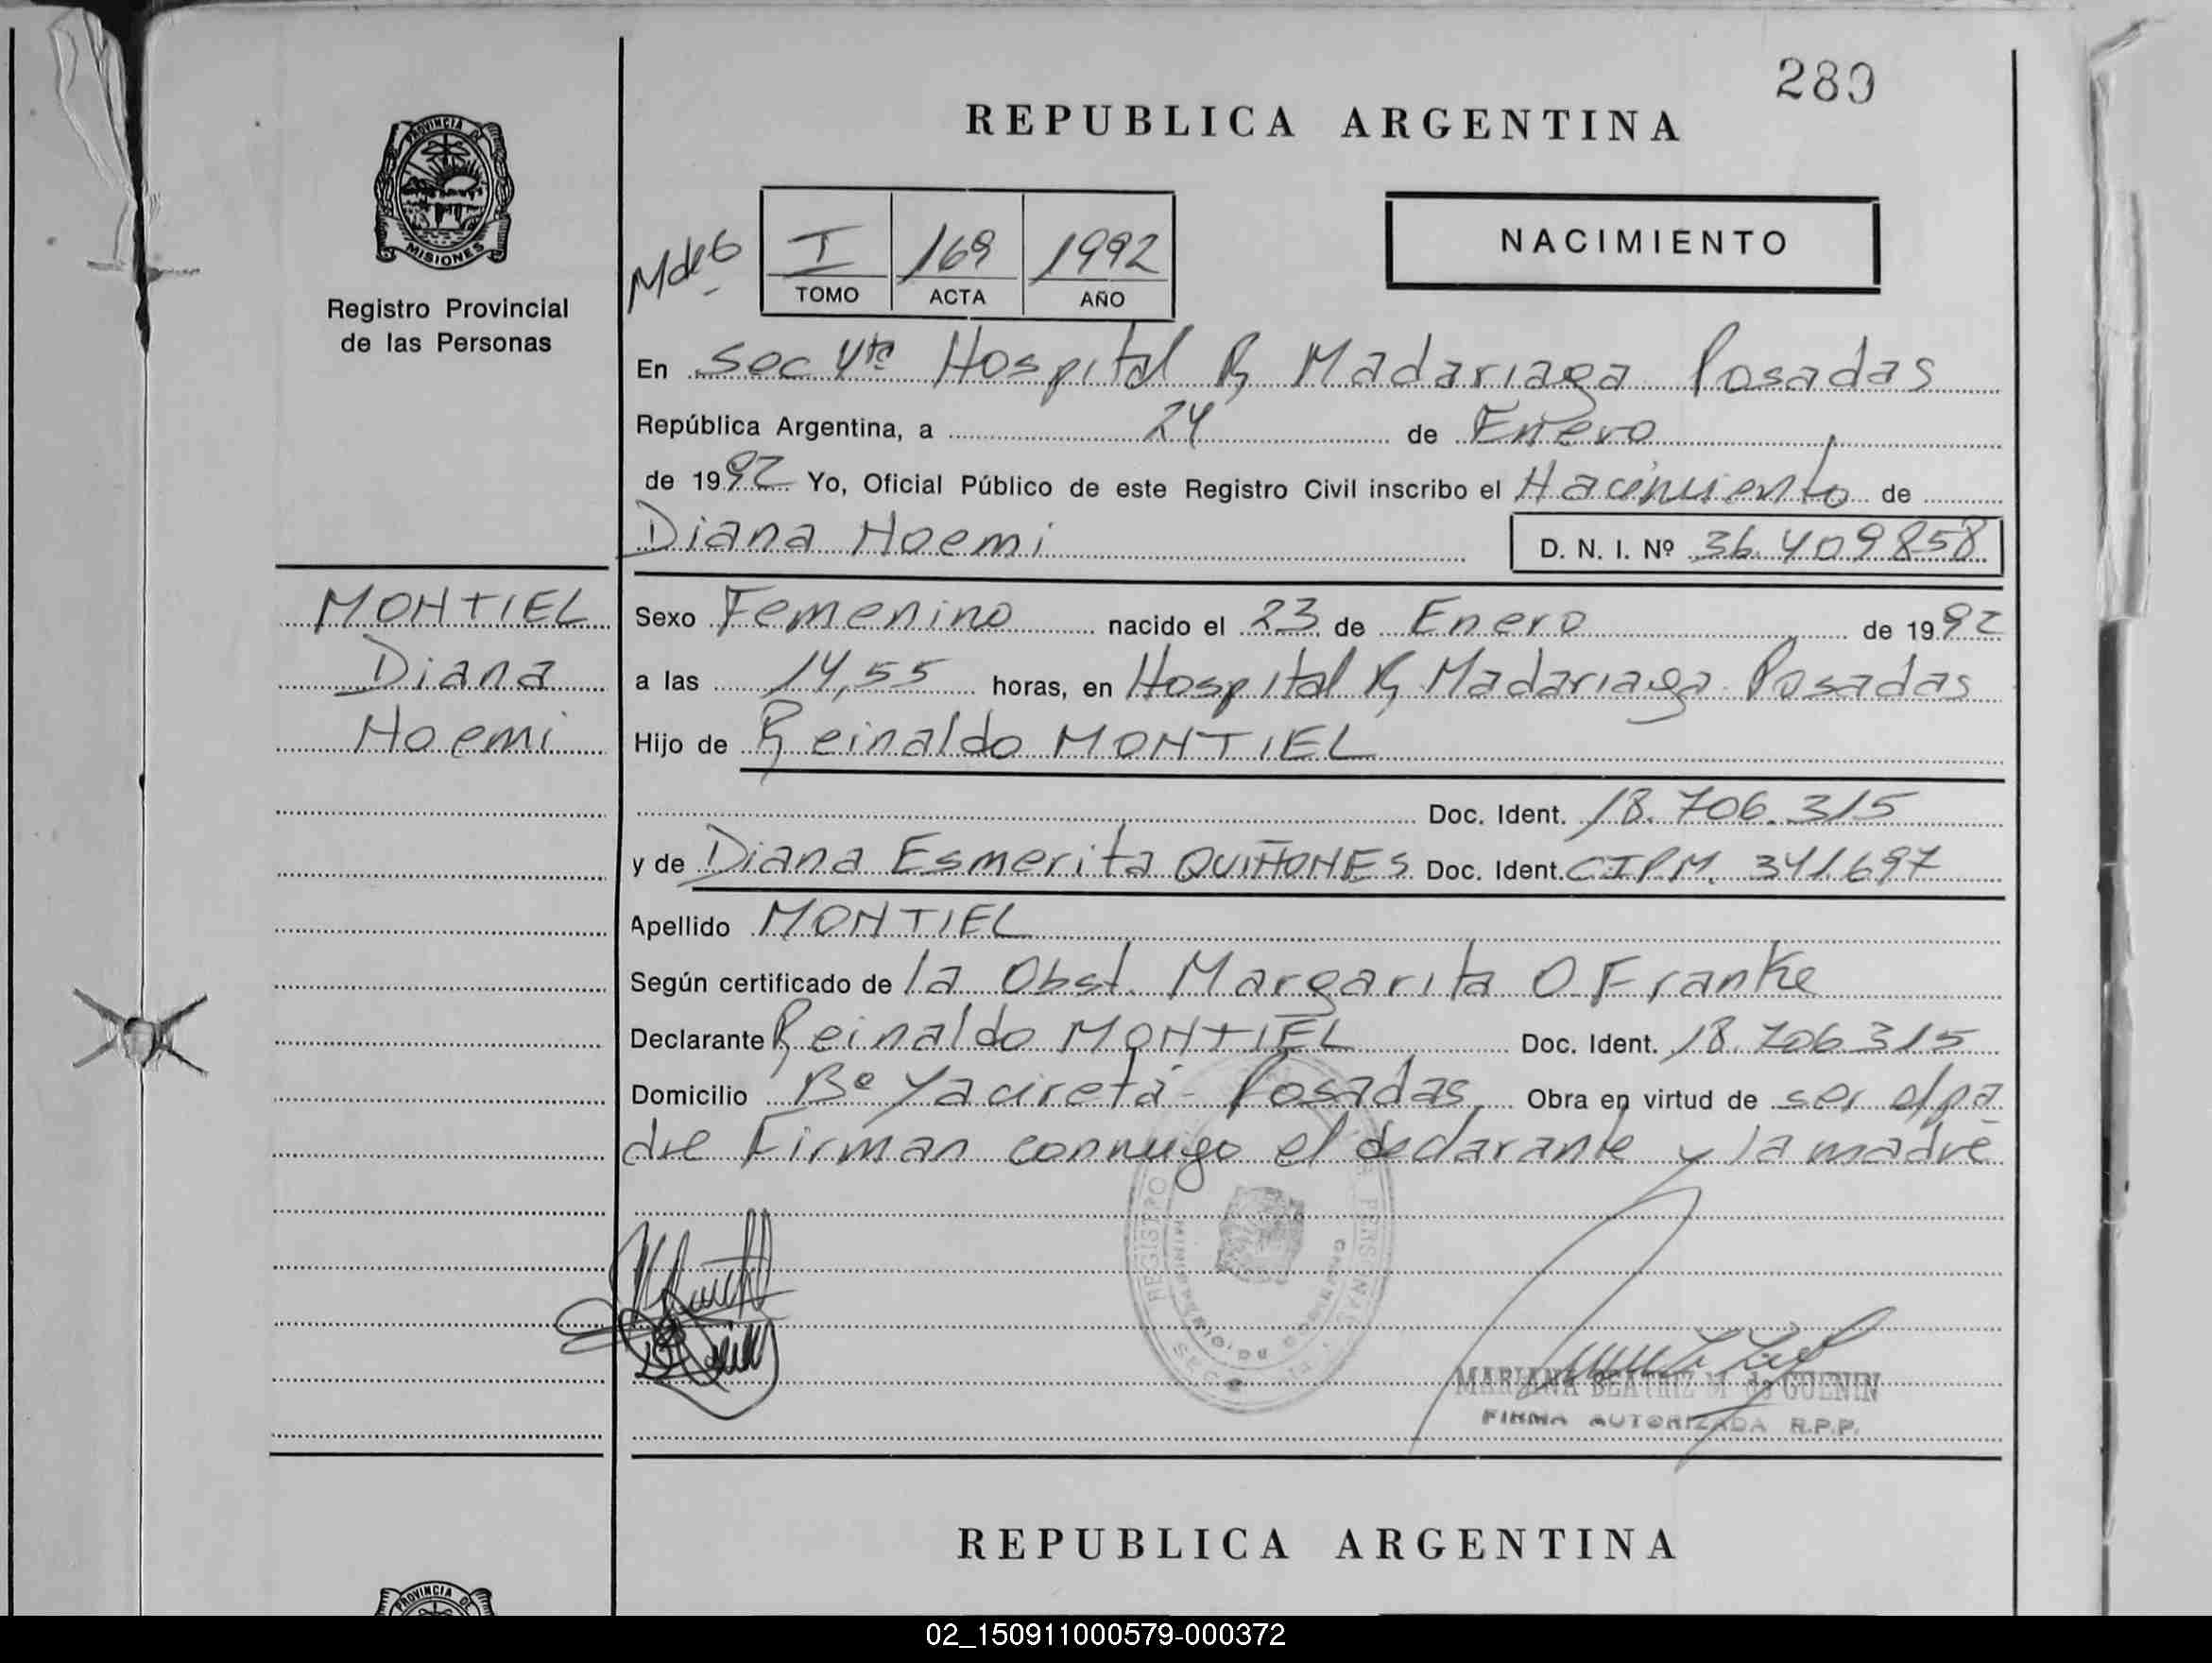 280
REPUBLICA ARGENTINA
PROVINCIA DE
MISIONES
Registro Provincial
de las Personas
I 169 1992
TOMO ACTA AÑO
NACIMIENTO
En Sec 4ta Hospital R Madariaga Posadas
República Argentina, a 24 de Enero
de 1992 Yo, Oficial Público de este Registro Civil inscribo el Nacimiento de
Diana Noemi D. N. I. Nº 36.409858
MONTIEL
Diana
Noemi
Sexo Femenino nacido el 23 de Enero de 1992
a las 14,55 horas, en Hospital R Madariaga Posadas
Hijo de Reinaldo MONTIEL
Doc. Ident. 18.706.315
y de Diana Esmerita QUIÑONES Doc. Ident. CIPM. 341.697
Apellido MONTIEL
Según certificado de la Obst. Margarita O Franke
Declarante Reinaldo MONTIEL Doc. Ident. 18.706.315
Domicilio Bº Yacireta - Posadas Obra en virtud de ser el pa
dre Firman conmigo el declarante y la madre
MARIANA BEATRIZ M de GUENIN
FIRMA AUTORIZADA R.P.P.
REPUBLICA ARGENTINA
PROVINCIA DE
02_150911000579-000372